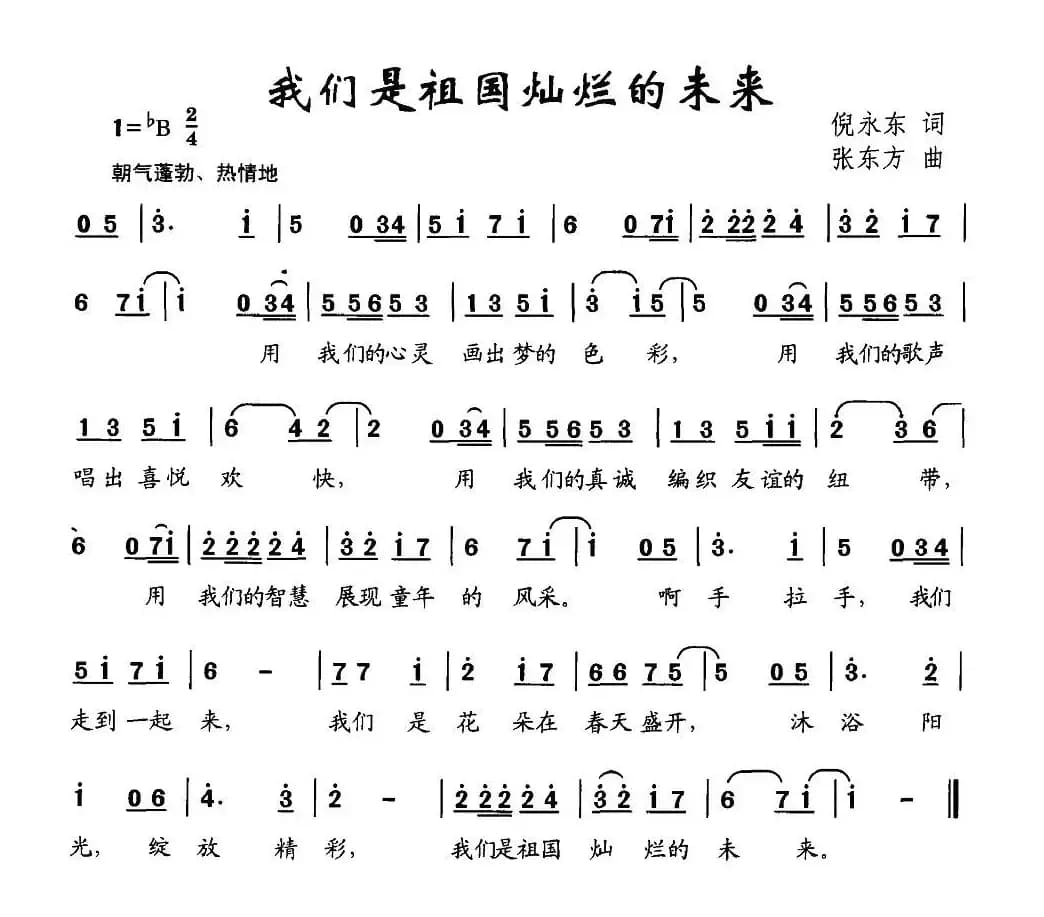 我们是祖国灿烂的未来
1=♭B 2/4
倪永东 词
朝气蓬勃、热情地
张东方 曲
0 5 | 3̇. 1̇ | 5 0 34 | 5 1̇ 7 1̇ | 6 0 71̇ | 2̇ 2̇2̇ 2̇ 4̇ | 3̇ 2̇ 1̇ 7 |
6 7 1̇ | 1̇ 0 34 | 5 5 6 5 3 | 1 3 5 1̇ | 3̇ 1̇ 5 | 5 0 34 | 5 5 6 5 3 |
用 我们的心灵 画出梦的 色 彩, 用 我们的歌声
1 3 5 1̇ | 6 4 2 | 2 0 34 | 5 5 6 5 3 | 1 3 5 1̇ 1̇ | 2̇ 3̇ 6 |
唱出喜悦 欢 快, 用 我们的真诚 编织友谊的 纽 带,
6 0 71̇ | 2̇ 2̇ 2̇ 2̇ 4̇ | 3̇ 2̇ 1̇ 7 | 6 7 1̇ | 1̇ 0 5 | 3̇. 1̇ | 5 0 34 |
用 我们的智慧 展现童年 的 风采。 啊 手 拉 手, 我们
5 1̇ 7 1̇ | 6 – | 7 7 1̇ | 2̇ 1̇ 7 | 6 6 7 5 | 5 0 5 | 3̇. 2̇ |
走到一起 来, 我们 是 花 朵在 春天盛开, 沐 浴 阳
1̇ 0 6 | 4̇. 3̇ | 2̇ – | 2̇ 2̇ 2̇ 2̇ 4̇ | 3̇ 2̇ 1̇ 7 | 6 7 1̇ | 1̇ – ‖
光, 绽 放 精 彩, 我们是祖国 灿 烂的 未 来。